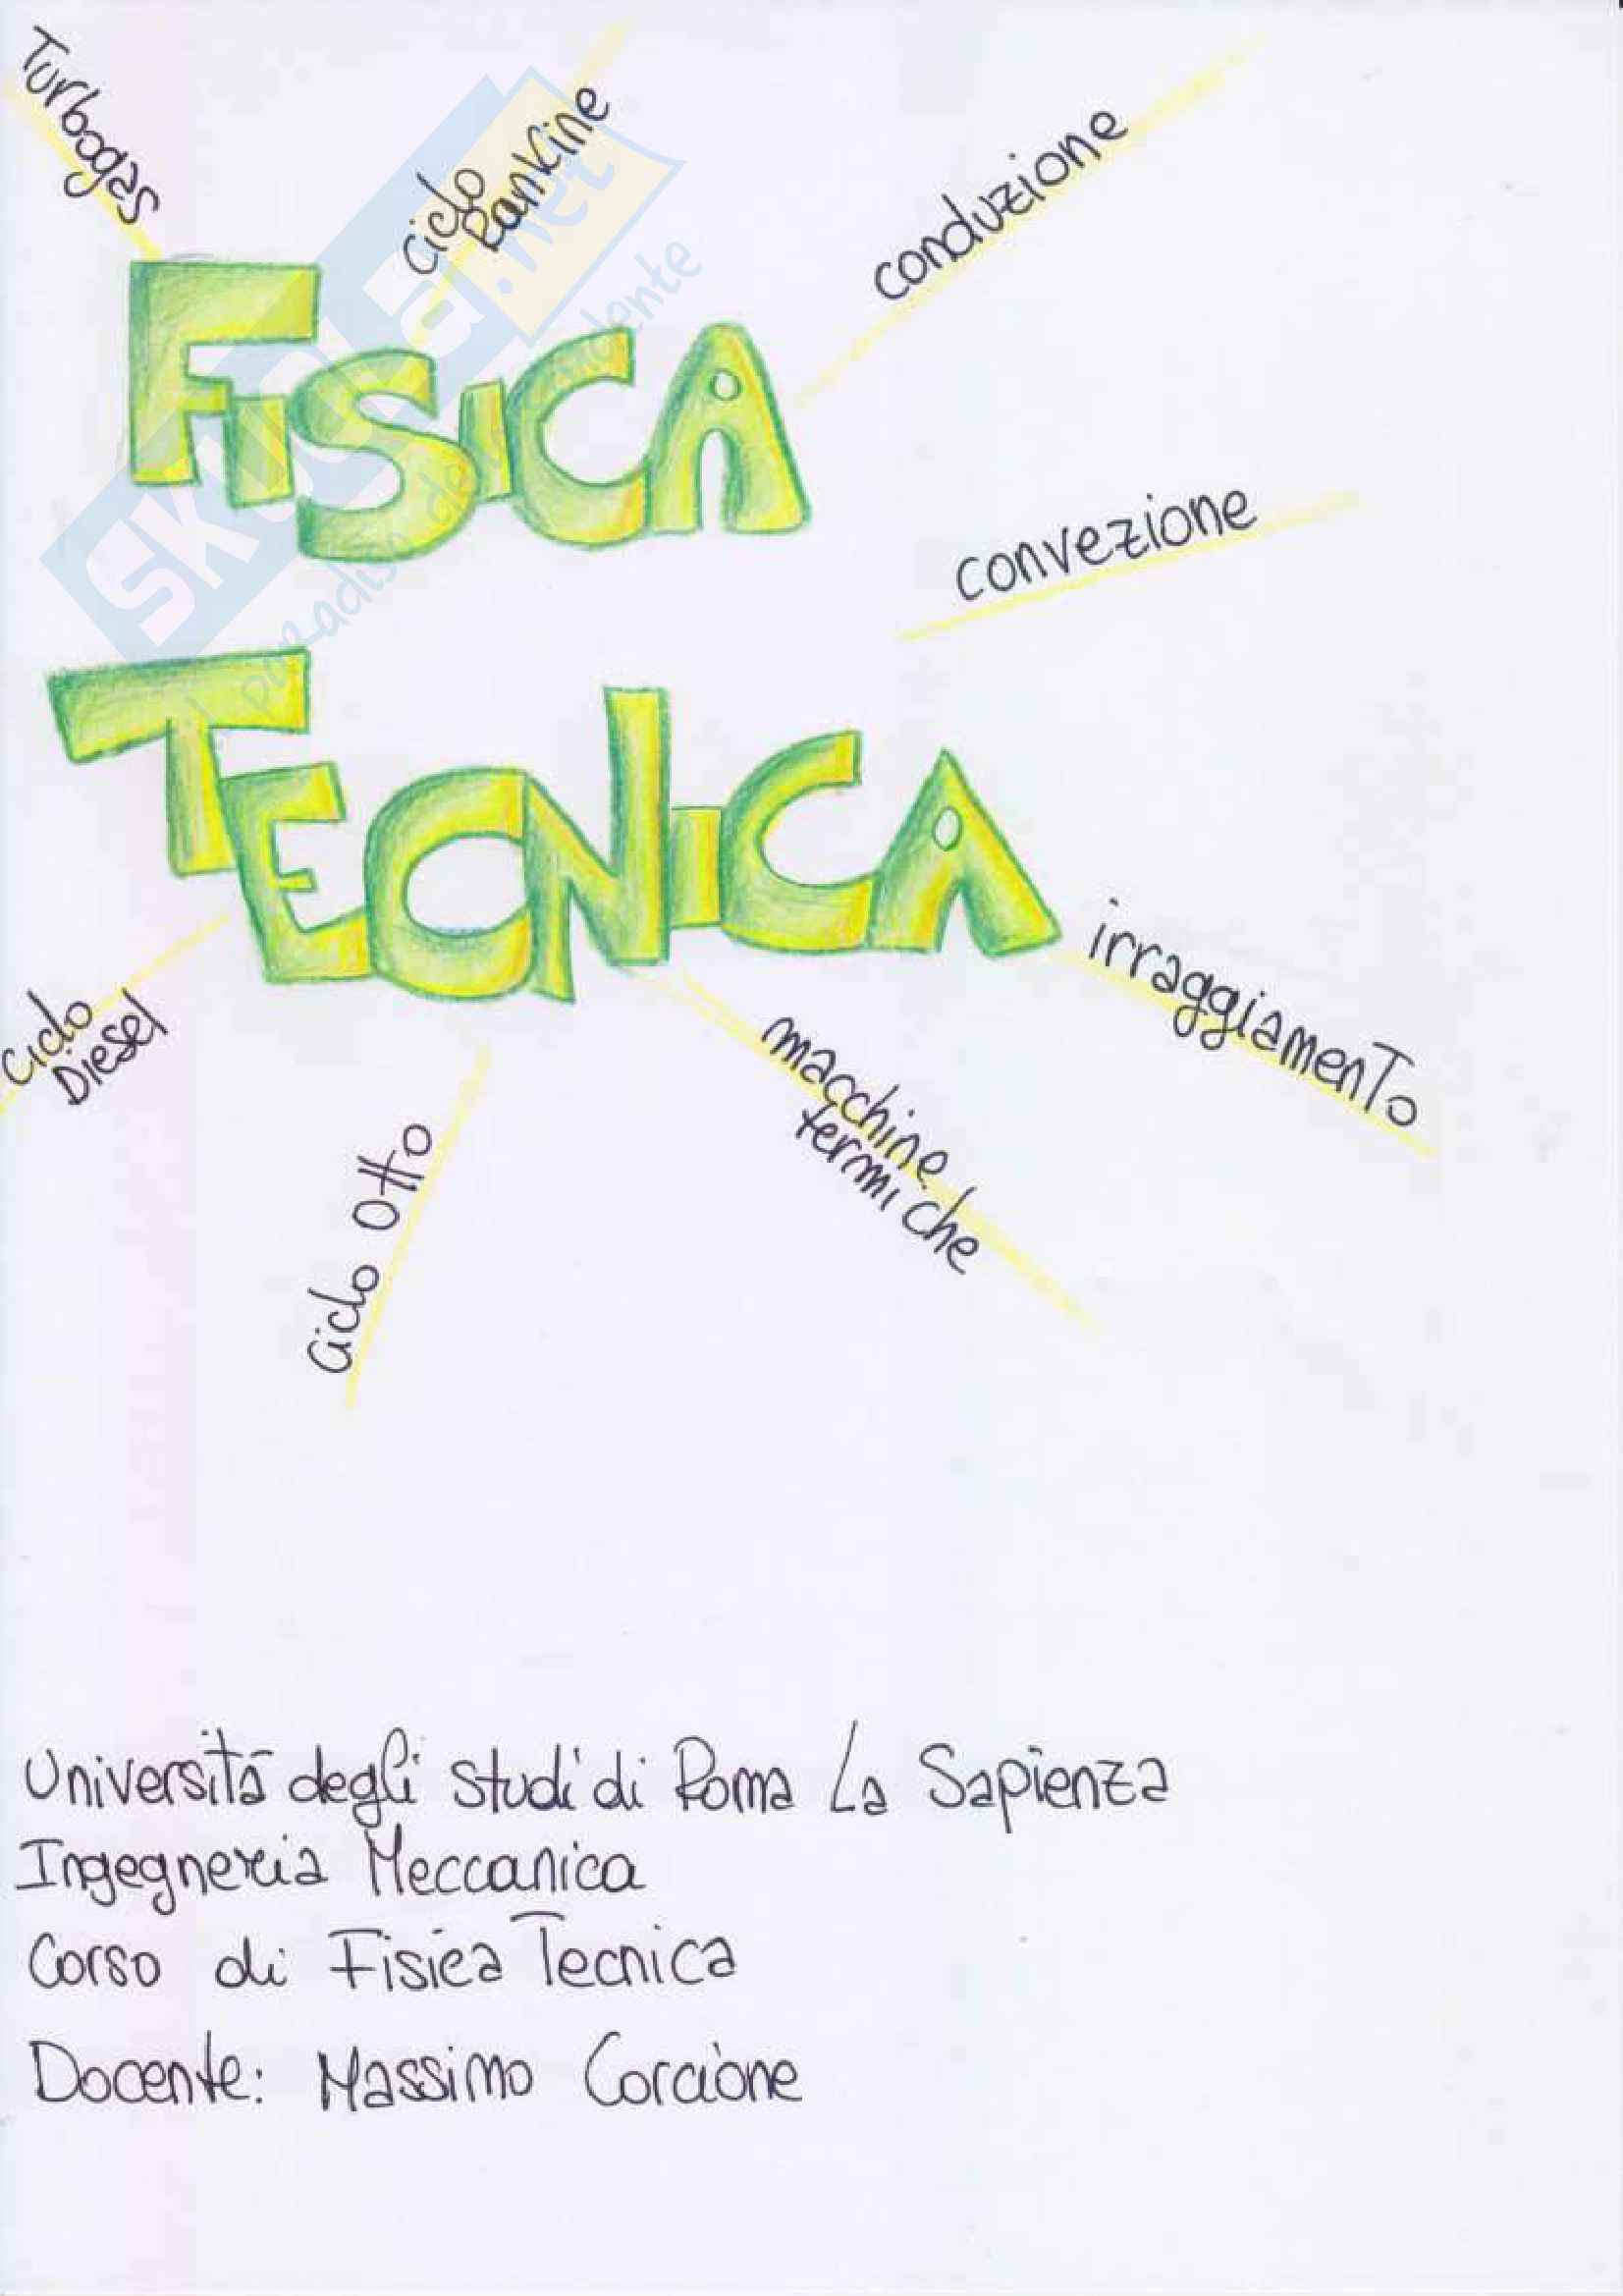 Turbogas
ciclo
Rankine
conduzione
FISICA
convezione
TECNICA
irraggiamento
ciclo
Diesel
macchine
termiche
ciclo Otto
Università degli studi di Roma La Sapienza
Ingegneria Meccanica
Corso di Fisica Tecnica
Docente: Massimo Corcione
SKUOLA.net